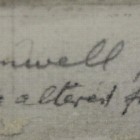 nwell,
altered f